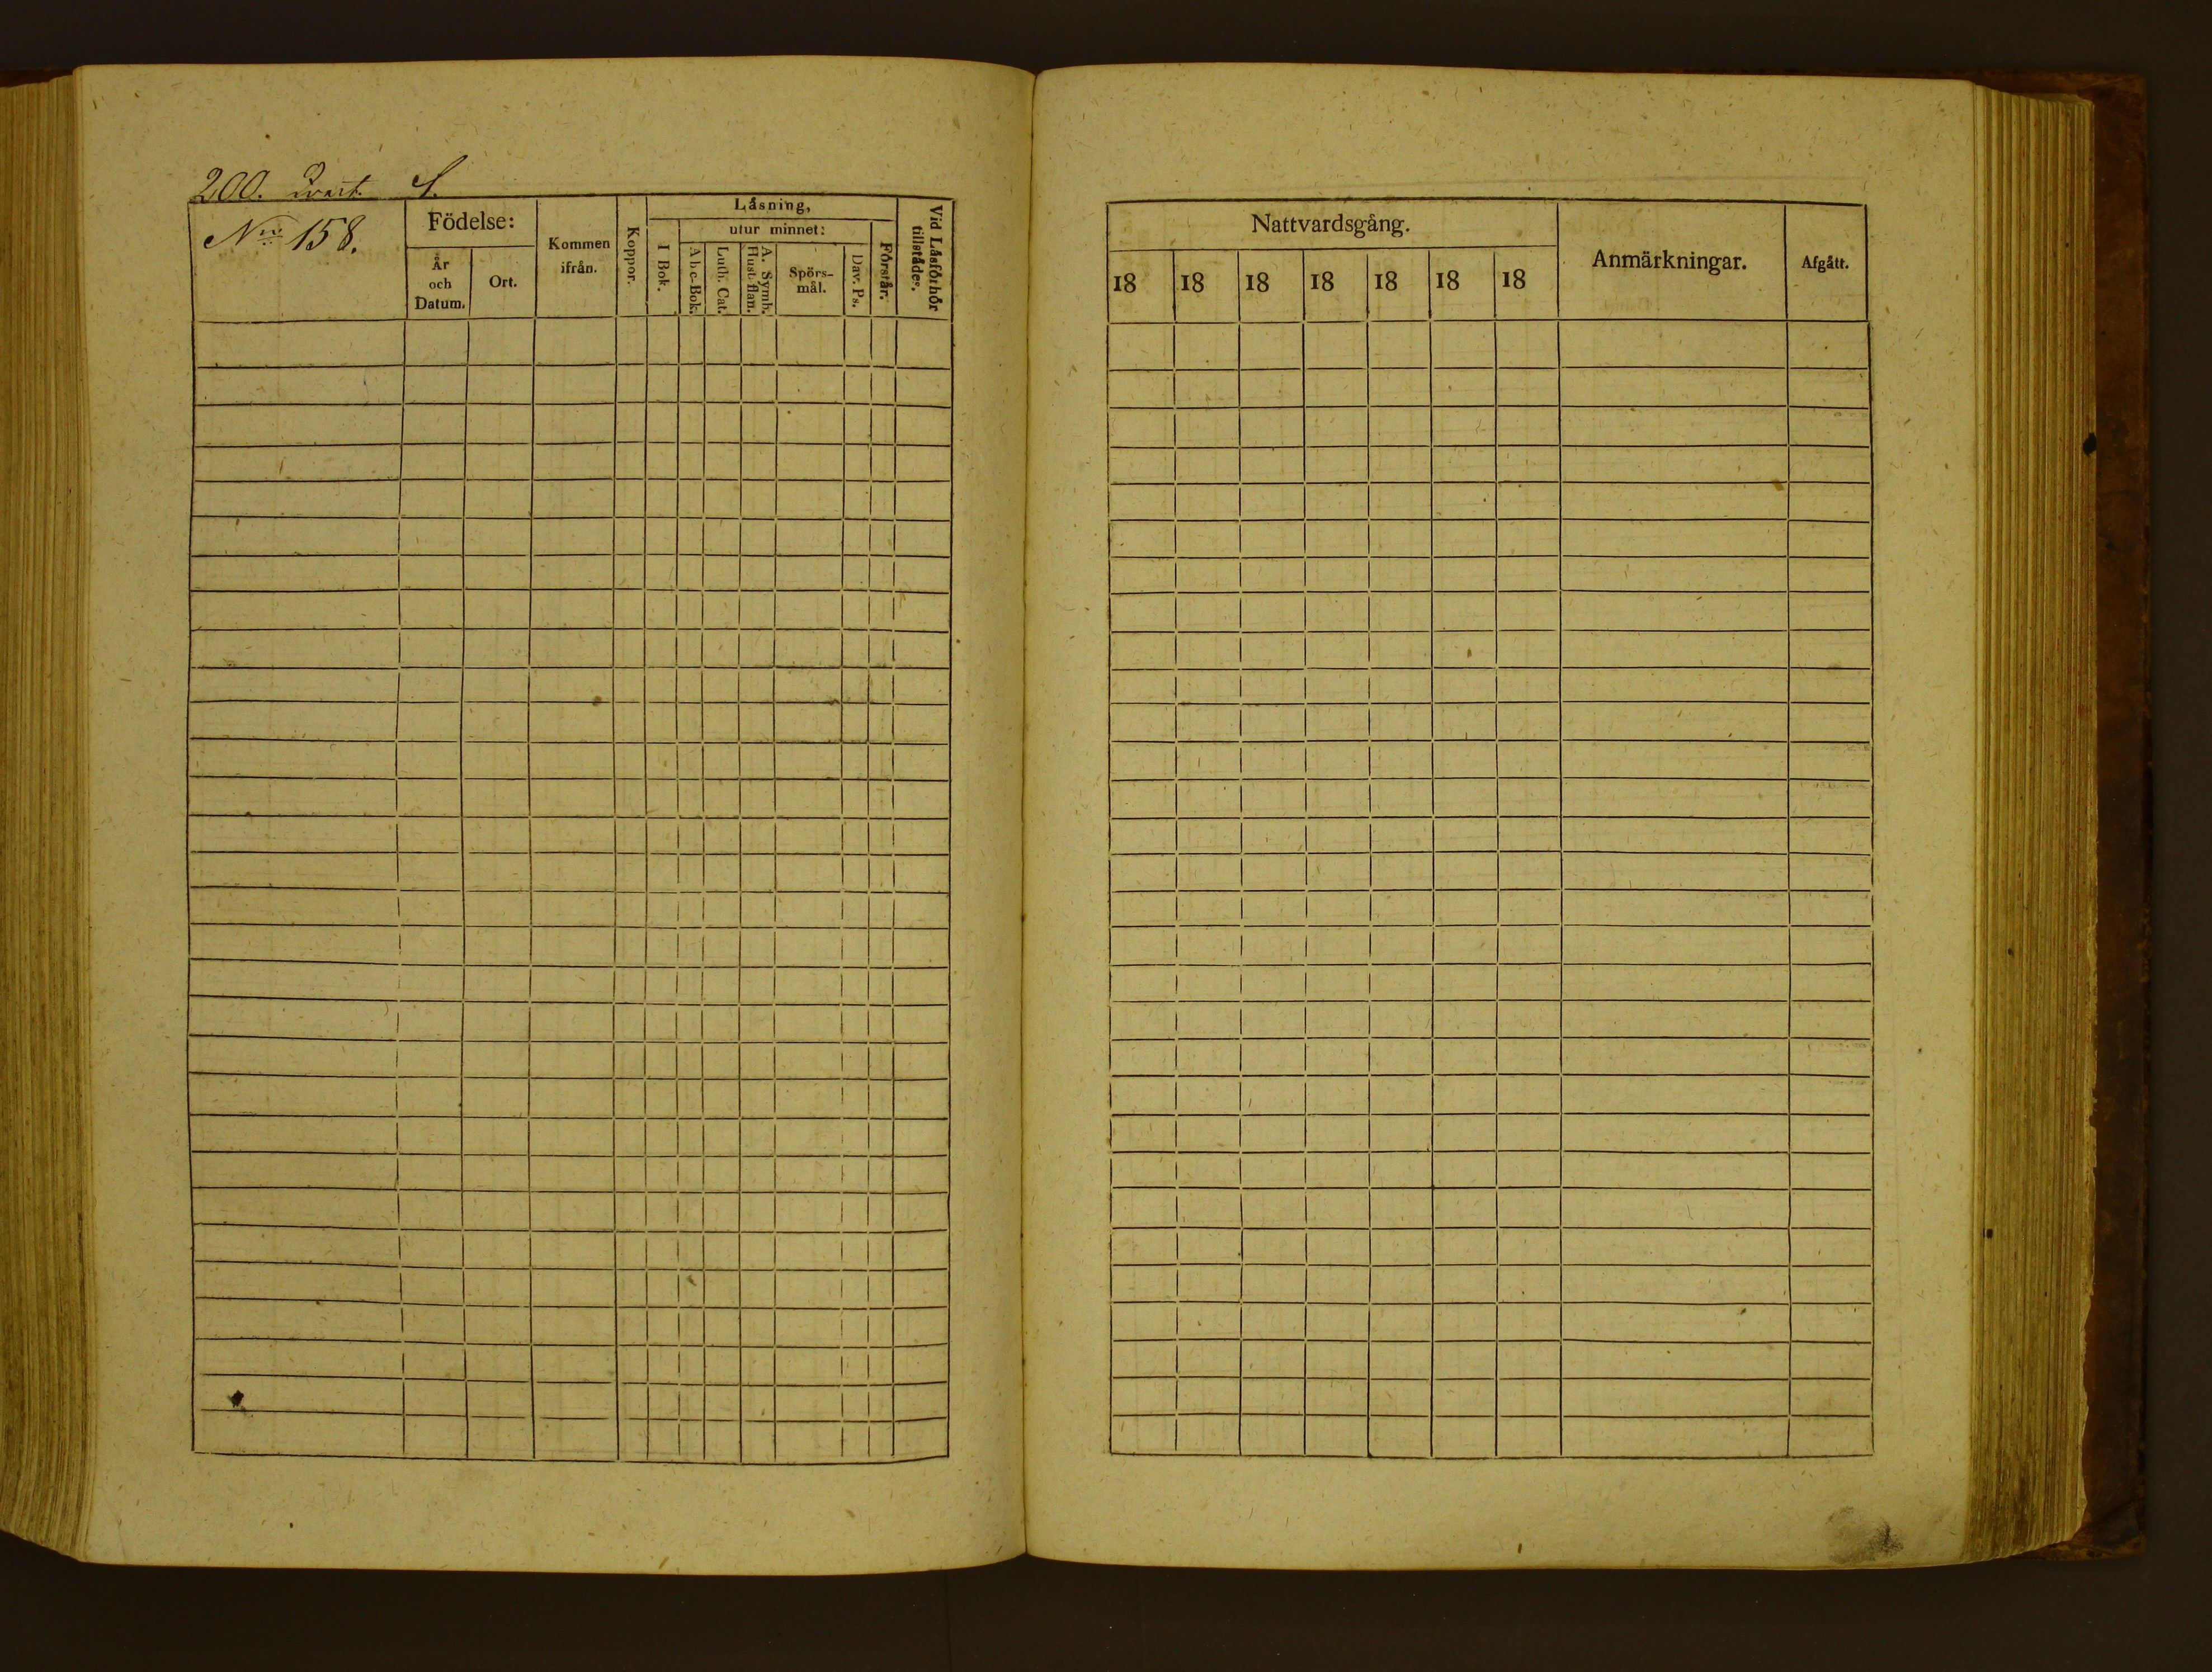 200. Qvart. S.
Nro 158.
Födelse:
År
och
Datum.
Ort.
Kommen
ifrån.
Koppor.
Låsning,
I Bok.
utur minnet:
Abc-Bok.
Luth. Cat.
A. Symb.
Hust. flan.
Spörs-
mål.
Dav. Ps.
Förstår.
Vid Låsförhör
tillstädes.
Nattvardsgång.
18 18 18 18 18 18 18
Anmärkningar.
Afgått.